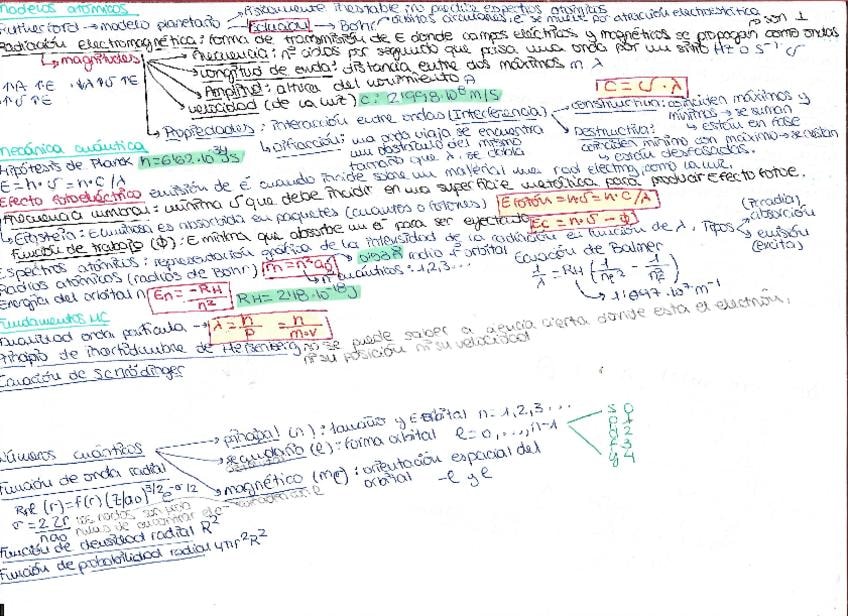 Modelos atómicos
Rutherford → modelo planetario → físicamente inestable no predice espectros atómicos
→ Solución → Bohr: órbitas circulares, e⁻ se mueve por atracción electrostática
Radiación electromagnética: forma de transmisión de E donde campos eléctricos y magnéticos se propagan como ondas
→ magnitudes → Frecuencia: nº ciclos por segundo que pasa una onda por un sitio Hz o s⁻¹ υ
Longitud de onda: distancia entre dos máximos m λ
Amplitud: altura del movimiento A
velocidad (de la luz) c: 2'998·10⁸ m/s
C = υ·λ
↑υ ↑E
Propiedades: interacción entre ondas (Interferencia)
constructiva: coinciden máximos y mínimos → se suman
→ están en fase
Destructiva: coinciden mínimo con máximo → se restan
→ están desfasadas.
Difracción: una onda viaja, se encuentra un obstáculo del mismo tamaño que λ, se dobla
Mecánica cuántica
Hipótesis de Planck h=6'62·10⁻³⁴ Js
E = h·υ = h·c/λ
Efecto fotoeléctrico emisión de e⁻ cuando incide sobre un material una rad electrmg, como la luz.
Frecuencia umbral: mínima υ que debe incidir en una superficie metálica para producir Efecto fotoe.
→ Einstein: E luminosa es absorbida en paquetes (cuantos o fotones) Efotón = h·υ = h·c/λ
Función de trabajo (Φ): E mínima que absorbe un e⁻ para ser eyectado Ec = h·υ − Φ
Espectros atómicos: representación gráfica de la intensidad de la radiación en función de λ. Tipos
(irradia) absorción
emisión (excita)
Radios atómicos (radios de Bohr) rn = n²a₀ radio 1º orbital
n cuánticos: 1,2,3...
Ecuación de Balmer
1/λ = RH (1/nf² − 1/ni²)
→ 1'097·10⁷ m⁻¹
Energías del orbital n En = −RH/n² RH = 2'18·10⁻¹⁸ J
Fundamentos MC
Dualidad onda partícula → λ = h/p = h/m·v
Principio de incertidumbre de Heisenberg no se puede saber a ciencia cierta donde esta el electrón,
ni su posición ni su velocidad
Ecuación de Schrödinger
Números cuánticos → principal (n): tamaño y E orbital n = 1,2,3...
secundario (l): forma orbital l = 0,...,n-1
s 0
p 1
d 2
f 3
g 4
magnético (ml): orientación espacial del orbital -l y l
Función de onda radial
Rnl (r) = f(r) (Z/a₀)^3/2 e^−σ/2
σ = 2Zr/na₀
Función de densidad radial R²
Función de probabilidad radial 4πr²R²